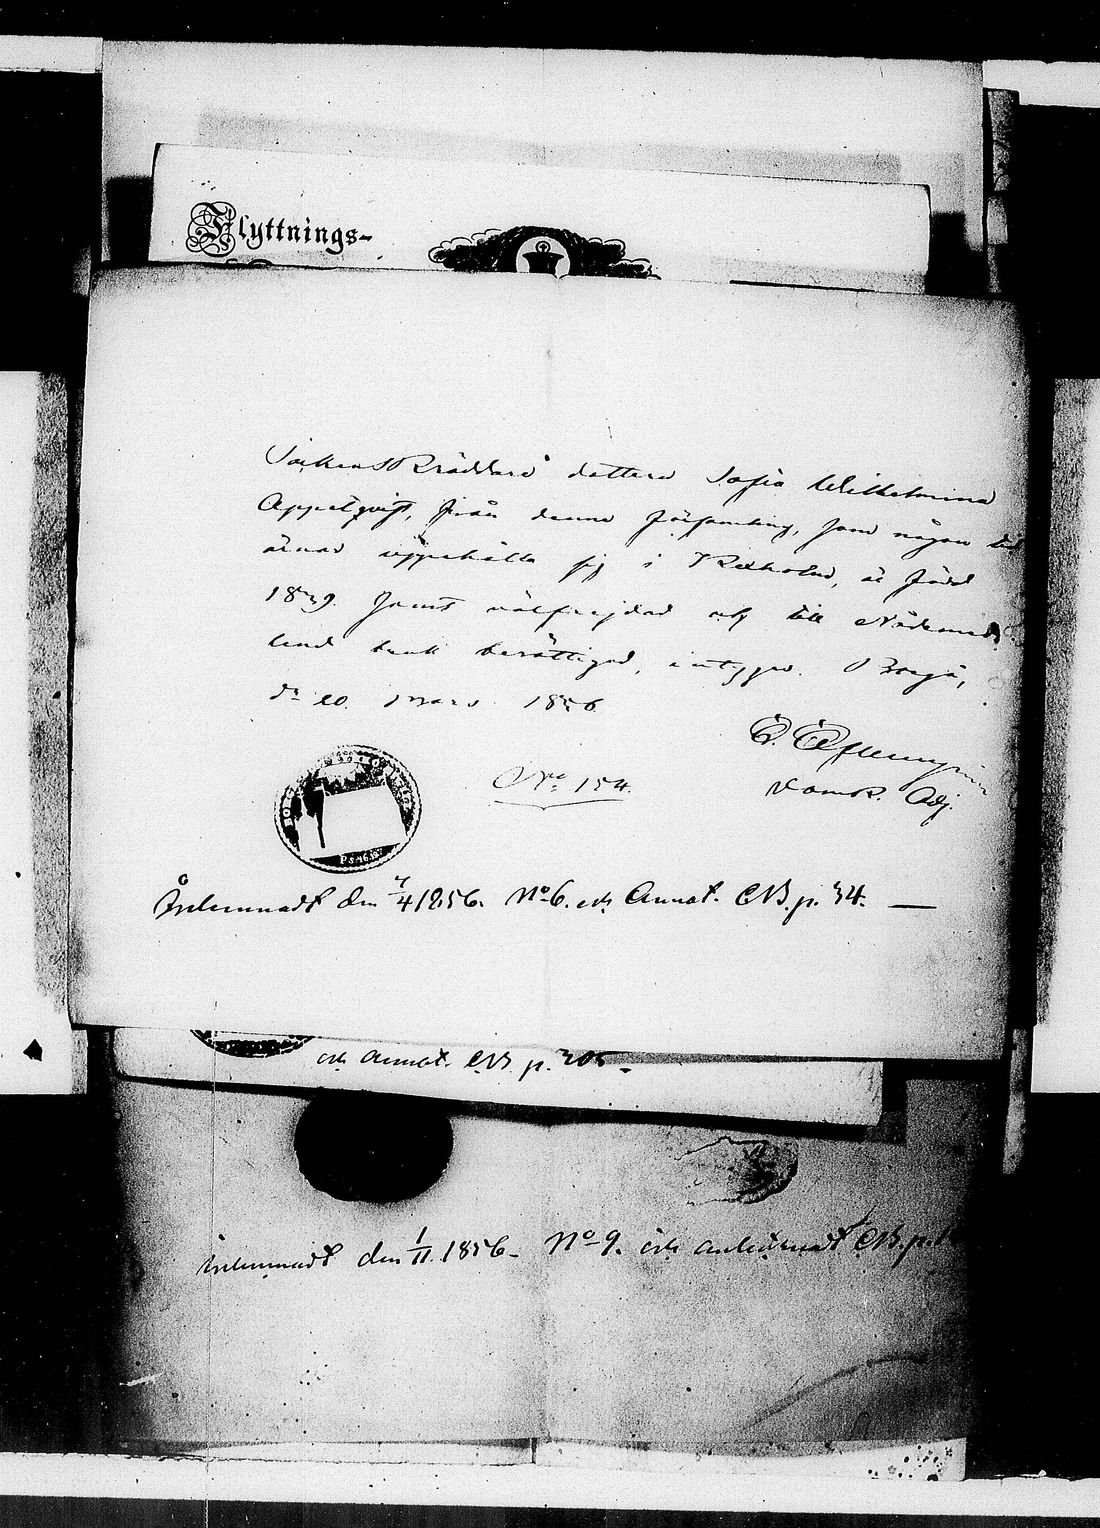 Flyttnings-
Socken Skräddare dottern Sofia Wilhelmina
Appelqvist, från denna församling, som någon tid
ärnar uppehålla sig i är född
1839. samt välfrejdad och till Nådemedlens
bruk berättigad, intygas. Borgå,
d. 20 mars 1856.
No 154.
Domk. Adj.
Inlemnadt den 7/4 1856. No 6. och Annot. CB. p. 34. —
och annot. CB p. 305.
Inlemnadt den 1/11 1856. No 9. och antecknadt CB. p.